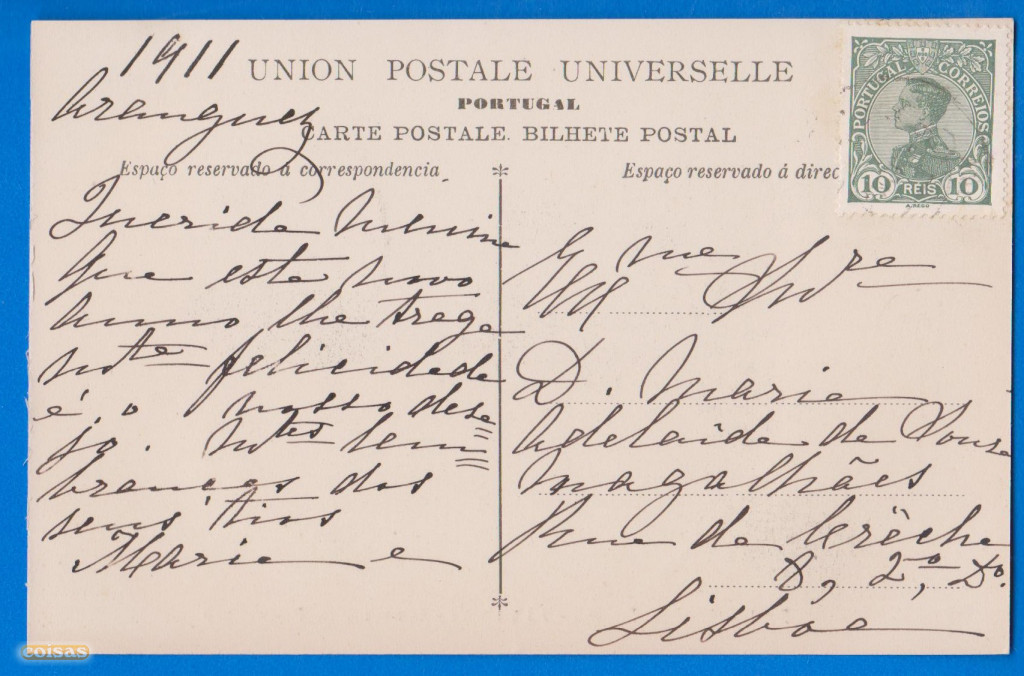 1911
UNION POSTALE UNIVERSELLE
PORTUGAL
Aranguez
CARTE POSTALE. BILHETE POSTAL
Espaço reservado á correspondencia
Espaço reservado á direc
PORTUGAL CORREIOS
10 REIS 10
Querida Menina
Que este novo
anno lhe traga
mta felicidade
é o nosso dese
jo. Mtas lem=
branças dos
seus tios
Maria e
Exma Snra
D. Maria
Adelaide de Souza
Magalhães
Rua da Crêche
8, 2º, Dº.
Lisboa
coisas